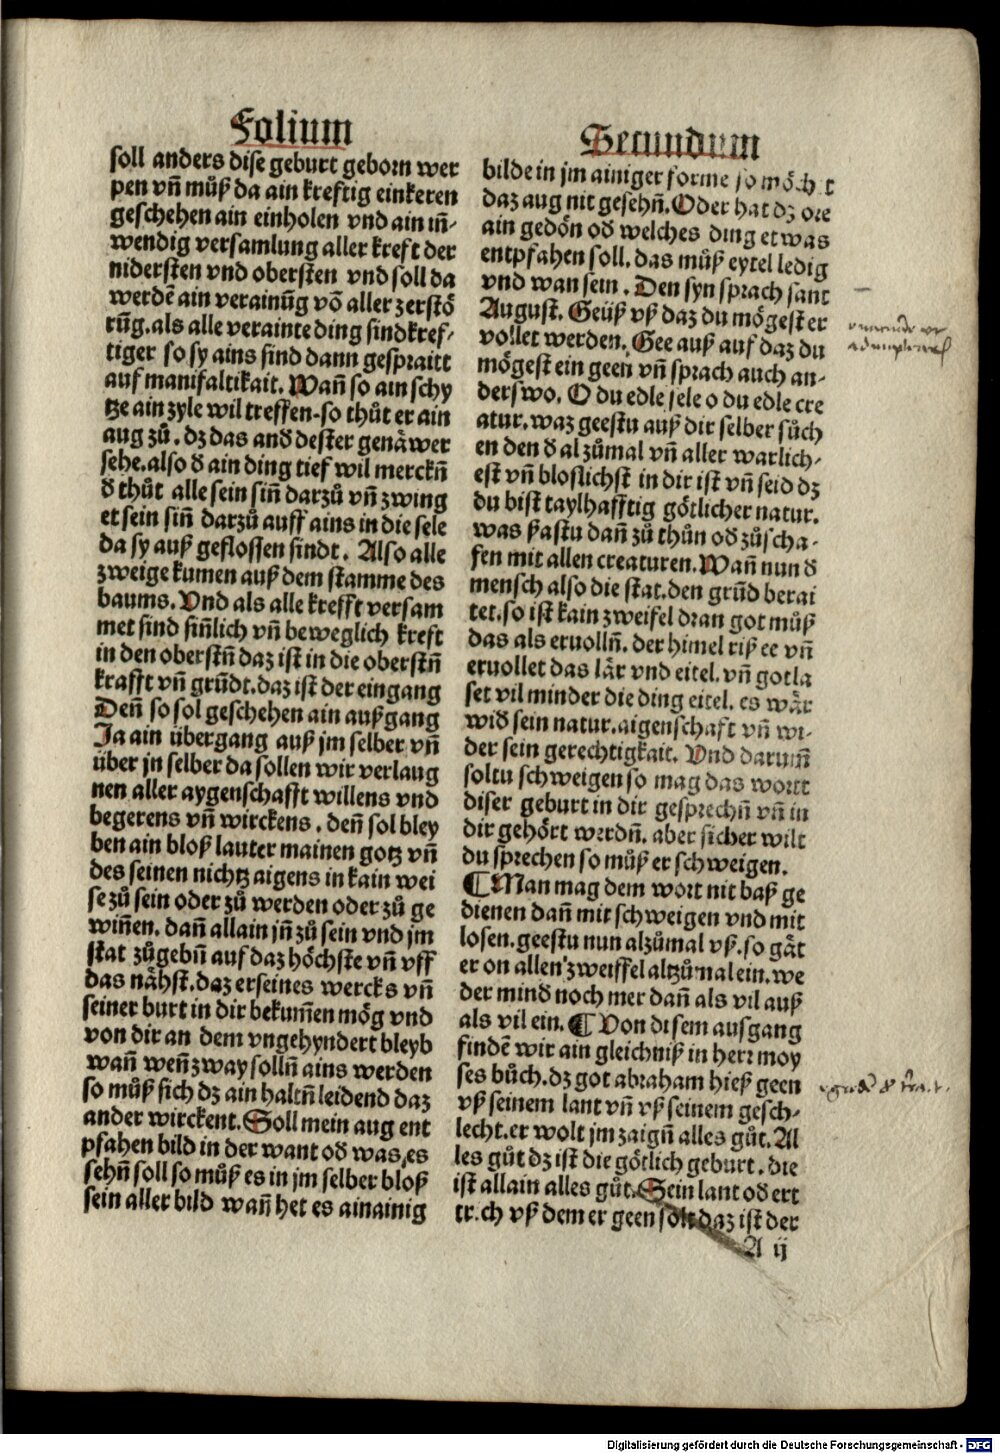 Folium
soll anders dise geburt geborn wer
pen vñ müß da ain kreftig einkeren
geschehen ain einholen vnd ain iñ-
wendig versamlung aller kreft der
nidersten vnd obersten vnd soll da
werdē ain verainūg vō aller zerstö
rūg. als alle verainte ding sind kref-
tiger so sy ains sind dann gespraitt
auf manifaltikait. Wañ so ain schy
tze ain zyle wil treffen-so thůt er ain
aug zů. dz das and̄ dester genäwer
sehe. also d̄ ain ding tief wil merckñ
d̄ thůt alle sein siñ darzů vñ zwing
et sein siñ darzů auff ains in die sele
da sy auß geflossen sindt. Also alle
zweige kumen auß dem stamme des
baums. Vnd als alle krefft versam
met sind siñlich vñ beweglich kreft
in den oberstñ daz ist in die oberstñ
krafft vñ grūdt. daz ist der eingang
Deñ so sol geschehen ain außgang
Ja ain übergang auß jm selber vñ
über jn selber da sollen wir verlaug
nen aller aygenschafft willens vnd
begerens vñ wirckens. deñ sol bley
ben ain bloß lauter mainen gotz vñ
des seinen nichtz aigens in kain wei
se zů sein oder zů werden oder zů ge
wiñen. dañ allain jñ zů sein vnd jm
stat zůgebñ auf daz höchste vñ vff
das nähst. daz er seines wercks vñ
seiner burt in dir bekum̄en mög vnd
von dir an dem vngehyndert bleyb
wañ weñ zway sollñ ains werden
so můß sich dz ain haltñ leidend daz
ander wirckent. Soll mein aug ent
pfahen bild in der want od̄ was es
sehñ soll so můß es in jm selber bloß
sein aller bild wañ het es ainainig
Secundum
bilde in jm ainiger forme so möch t
daz aug nit gesehñ. Oder hat dz ore
ain gedön od̄ welches ding etwas
entpfahen soll. das můß eytel ledig
vnd wan sein. Den syn sprach sant
August. Geüß vß daz du mögest er
vollet werden. Gee auß auf daz du
mögest ein geen vñ sprach auch an-
derswo. O du edle sele o du edle cre
atur. waz geestu auß dir selber sůch
en den d̄ alzůmal vñ aller warlich-
est vñ bloslichst in dir ist vñ seid dz
du bist taylhafftig götlicher natur.
was hastu dañ zů thůn od̄ zůscha-
fen mit allen creaturen. Wañ nun d̄
mensch also die stat. den grūd berai
tet. so ist kain zweifel dran got můß
das als ervollñ. der himel riß ee vñ
ervollet das lär vnd eitel. vñ got la
set vil minder die ding eitel. es wär
wid̄ sein natur. aigenschaft vñ wi-
der sein gerechtigkait. Vnd darum̄
soltu schweigen so mag das wortt
diser geburt in dir gesprechñ vñ in
dir gehört werdñ. aber sicher wilt
du sprechen so můß er schweigen.
¶ Man mag dem wort nit baß ge
dienen dañ mit schweigen vnd mit
losen. geestu nun alzůmal vß. so gät
er on allen zweiffel altzůmal ein. we
der mind̄ noch mer dañ als vil auß
als vil ein. ¶ Von disem ausgang
findē wir ain gleichniß in herr moy
ses bůch. dz got abraham hieß geen
vß seinem lant vñ vß seinem gesch-
lecht. er wolt jm zaigñ alles gůt. Al
les gůt dz ist die götlich geburt. die
ist allain alles gůt. Sein lant od̄ ert
tr.ch vß dem er geen solt daz ist der
A ij
Digitalisierung gefördert durch die Deutsche Forschungsgemeinschaft - DFG